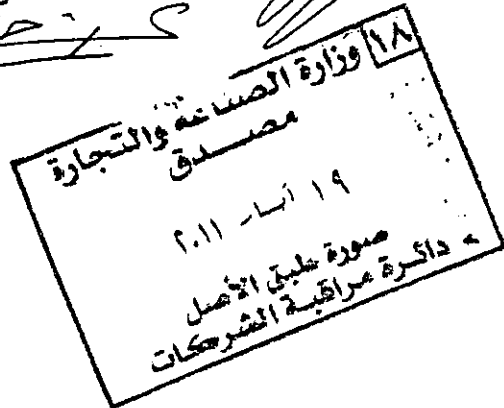 ١٨
وزارة الصناعة والتجارة
مصدق
١٩ أيار ٢٠١١
صورة طبق الأصل
دائرة مراقبة الشركات